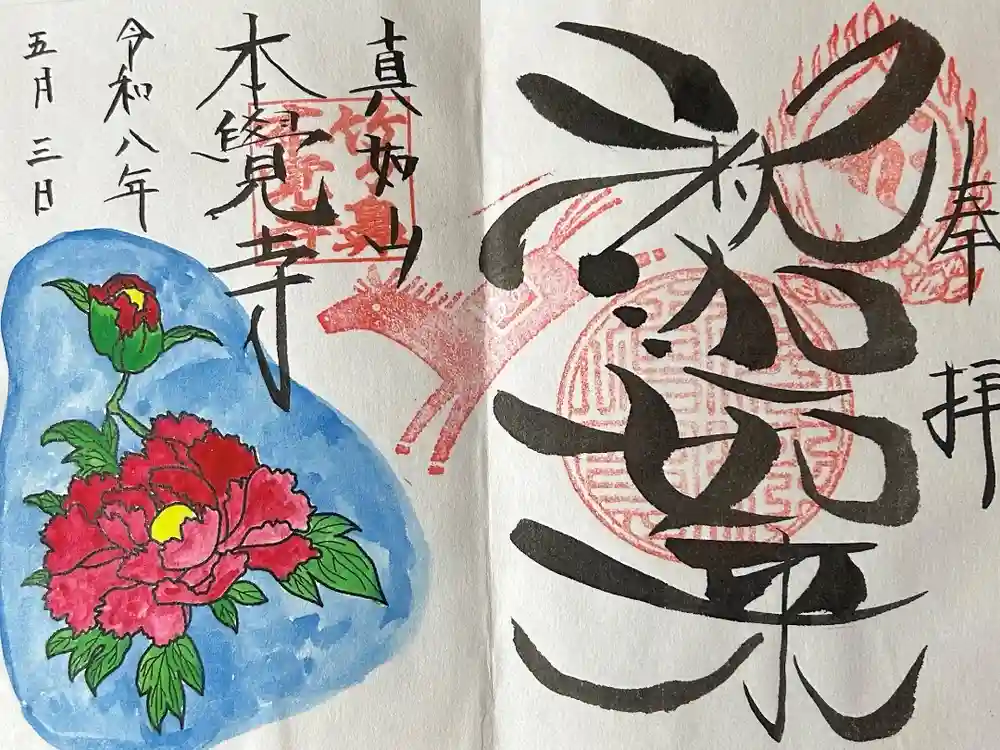 奉拝
釈迦如来
真如山
本覺寺
令和八年
五月三日